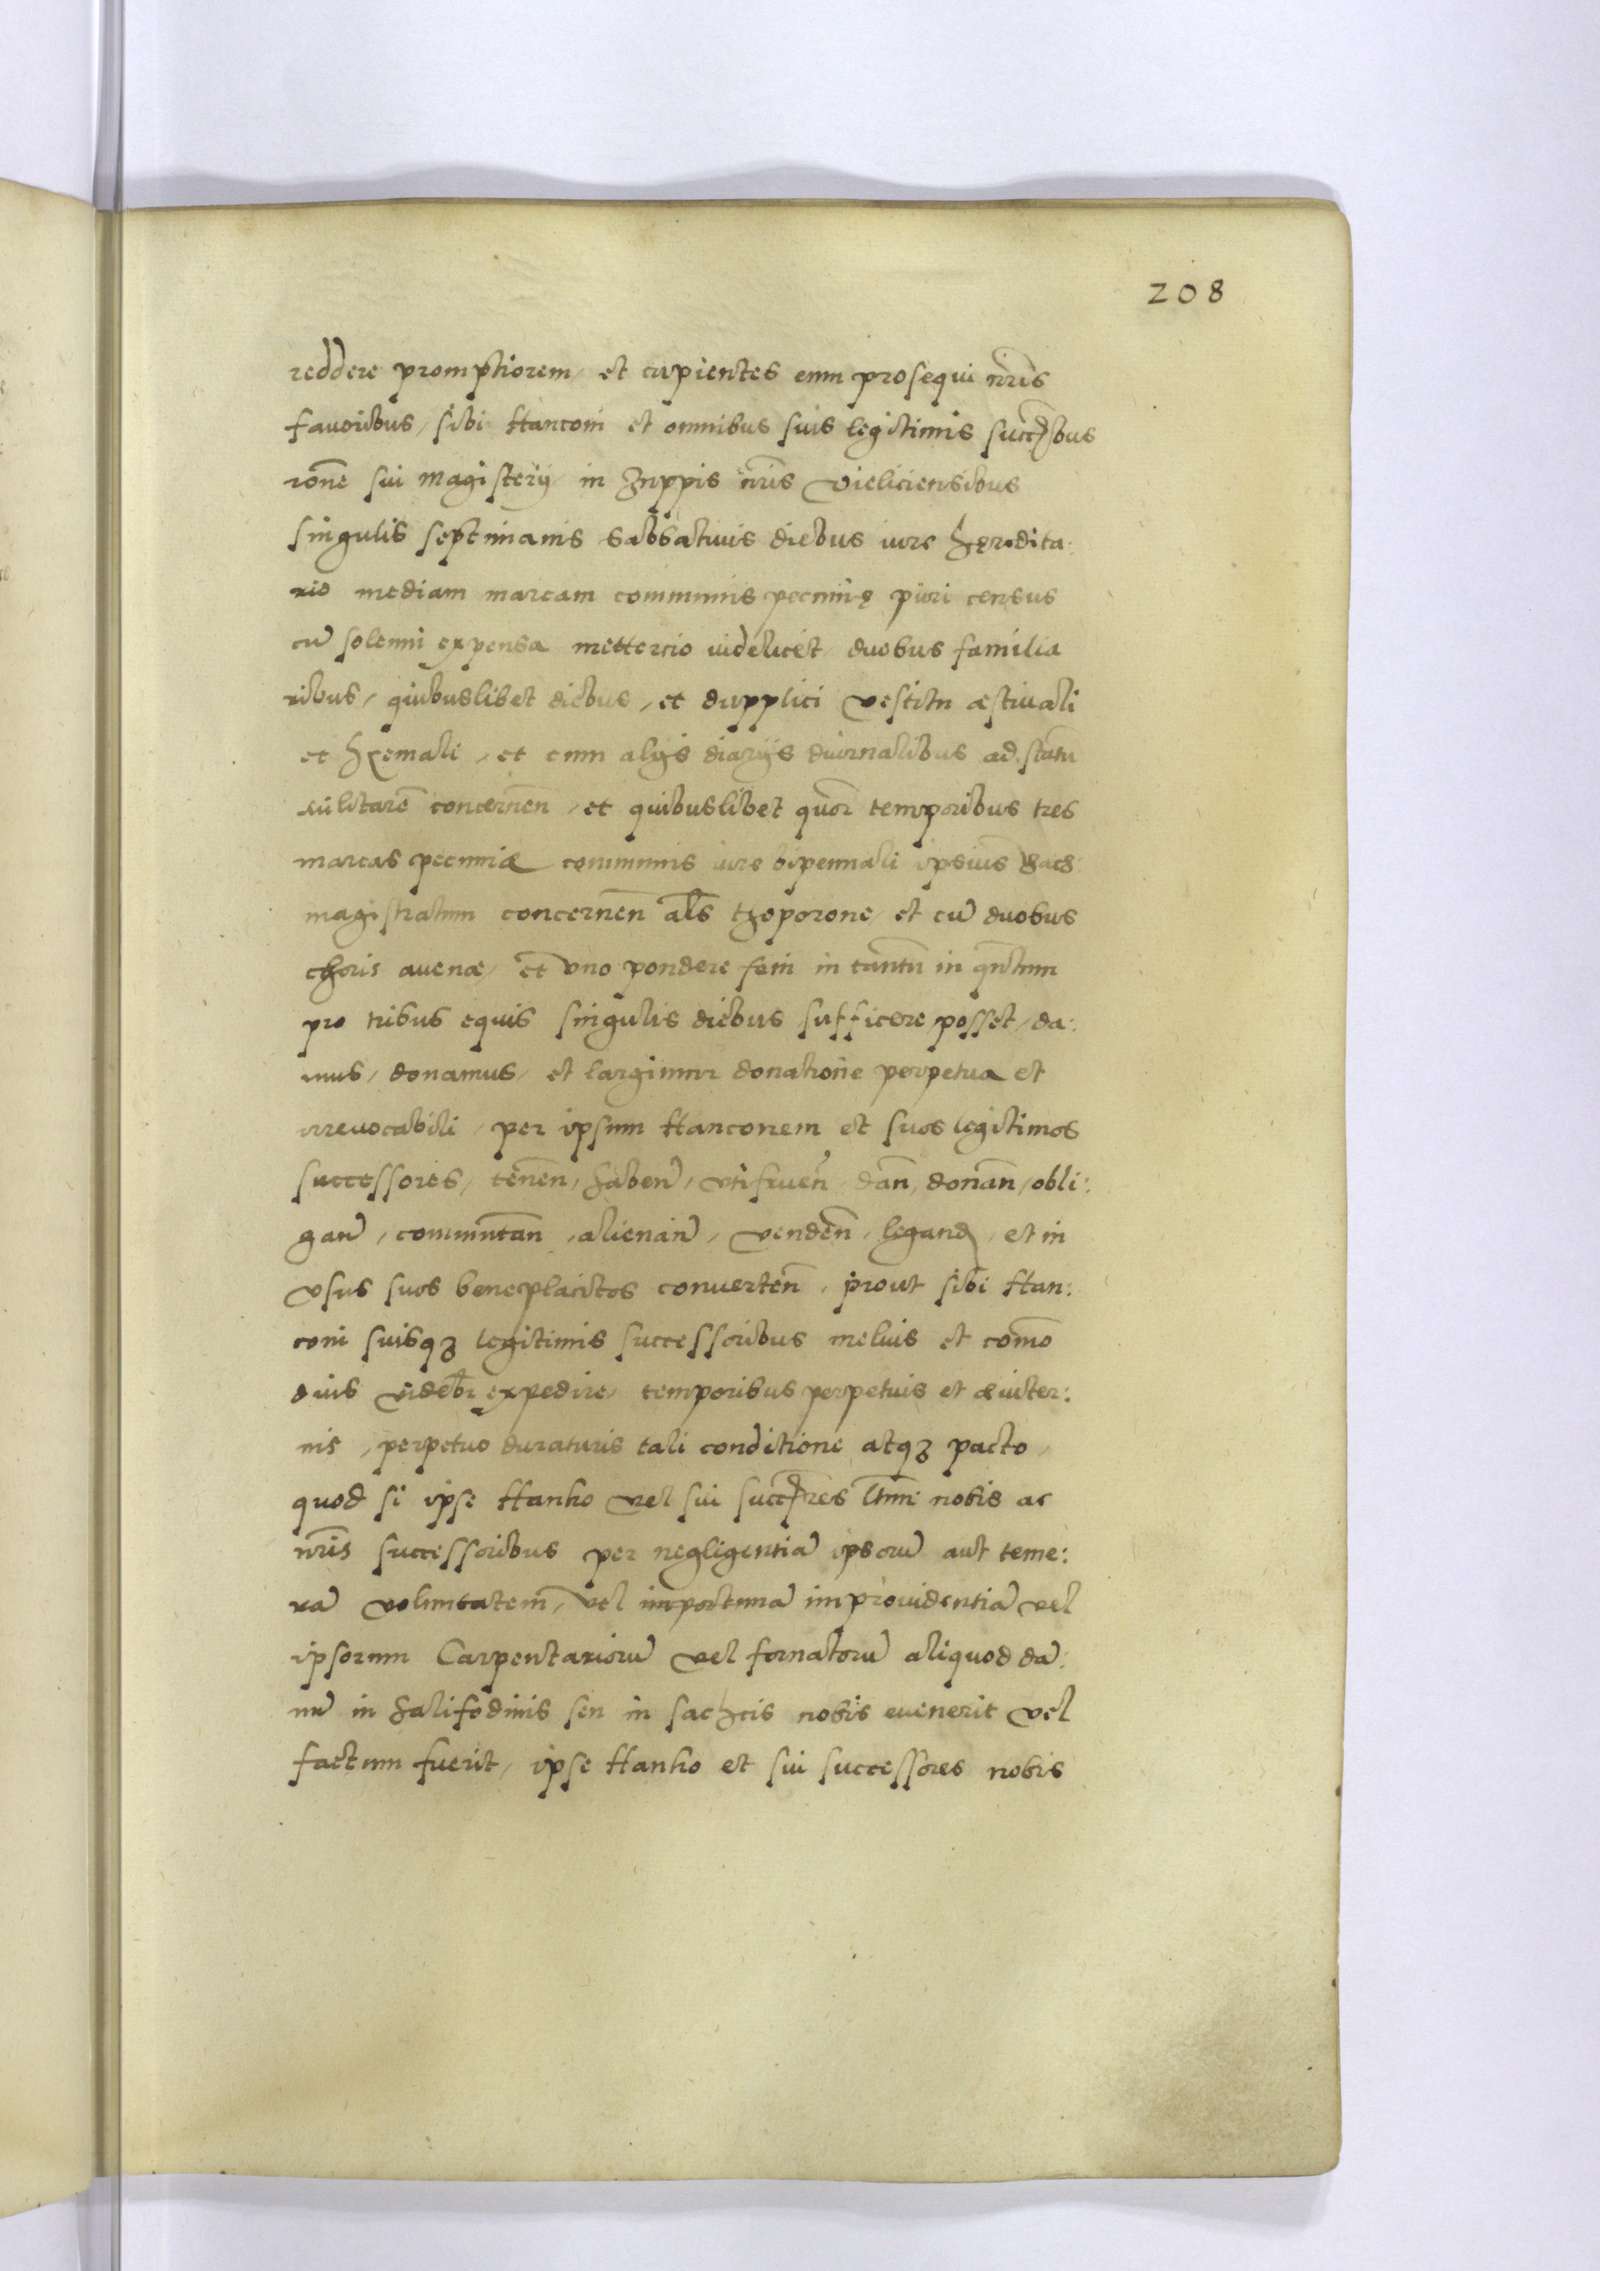 208
reddere promptiorem, et cupientes eum prosequi nr̃is
fauoribus, sibi Hanconi et omnibus suis legitimis succ̃bus
rõne sui magisterij in Zuppis nr̃is Vieliciensibus
singulis septimanis sabbatiuis diebus iure hęredita:
rio mediam marcam communis pecunię puri census
cũ solenni expensa mettercio uidelicet duobus familia
ribus, quibuslibet diebus, et dupplici vestitu æstiuali
et hyemali, et cum alijs diarijs diurnalibus ad statũ
militarẽ concernẽn, et quibuslibet quõr temporibus tres
marcas pecuniæ communis iure bipennali ipsius
magistratum concernẽn al̃s tzoporone, et cũ duobus
choris auenæ, et vno pondere feni in tantũ in q̃ntum
pro tribus equis singulis diebus sufficere posset, da:
mus, donamus, et largimur donatione perpetua et
irreuocabili, per ipsum Hanconem et suos legitimos
successores, tenẽn, habeñ, vtifruẽn, dãn, donãn, obli:
gañ, commutãn, alienañ, vendẽn, legand, et in
vsus suos beneplacitos conuertẽn, prout sibi Han:
coni suisq̃ legitimis successoribus melius et com̃o
dius videbĩ expedire, temporibus perpetuis et æuiter:
nis, perpetuo duraturis tali conditione atq̃ pacto,
quod si ipse Hanko vel sui succ̃res nobis ac
nr̃is successoribus per negligentiã ipsorũ aut teme:
rã voluntatem, vel importunã improuidentiã vel
ipsorum Carpentariorũ vel fornatorũ aliquod dã:
nũ in salifodinis seu in sachtis nobis euenerit vel
factum fuerit, ipse Hanko et sui successores nobis